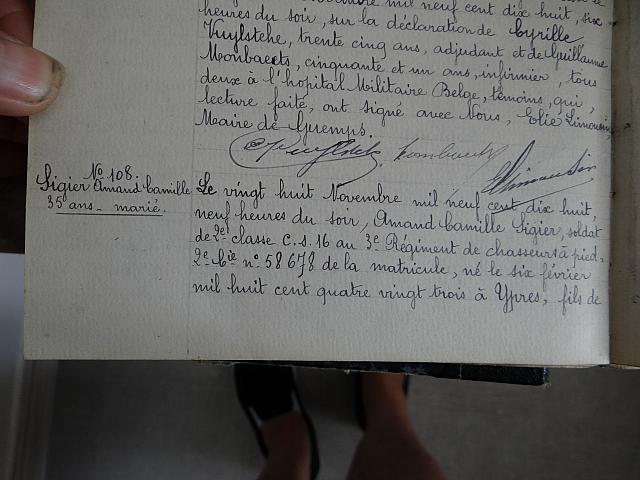 mil neuf cent dix huit, six
heures du soir, sur la déclaration de Cyrille
Kuylstehe, trente cinq ans, adjudant et de Guillaume
Mombaerts, cinquante et un ans, infirmier, tous
deux à l'hopital Militaire Belge, témoins, qui,
lecture faite, ont signé avec Nous, Elie Limousin,
Maire de Guemps.
No 108.
Sigier Amand Camille
35 ans - marié.
Le vingt huit Novembre mil neuf cent dix huit,
neuf heures du soir, Amand Camille Sigier, soldat
de 2e classe C.S. 16 au 3e Régiment de chasseurs à pied.
2e Cie no 58678 de la matricule, né le six février
mil huit cent quatre vingt trois à Ypres, fils de